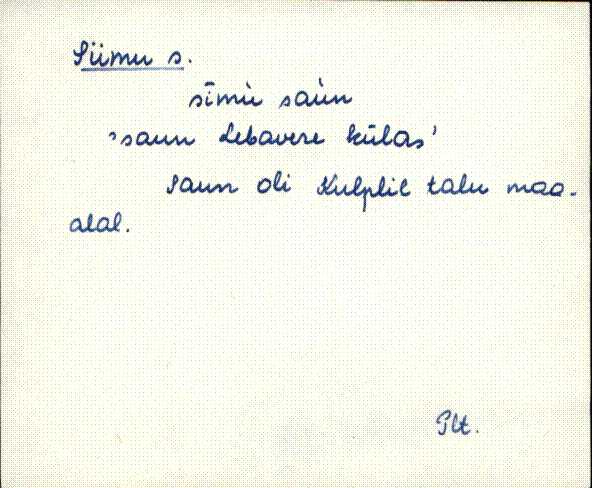 Siimu s.
sīmù saùn
'saun Lebavere külas'
Saun oli Kulplil talu maa-
alal.
Plt.